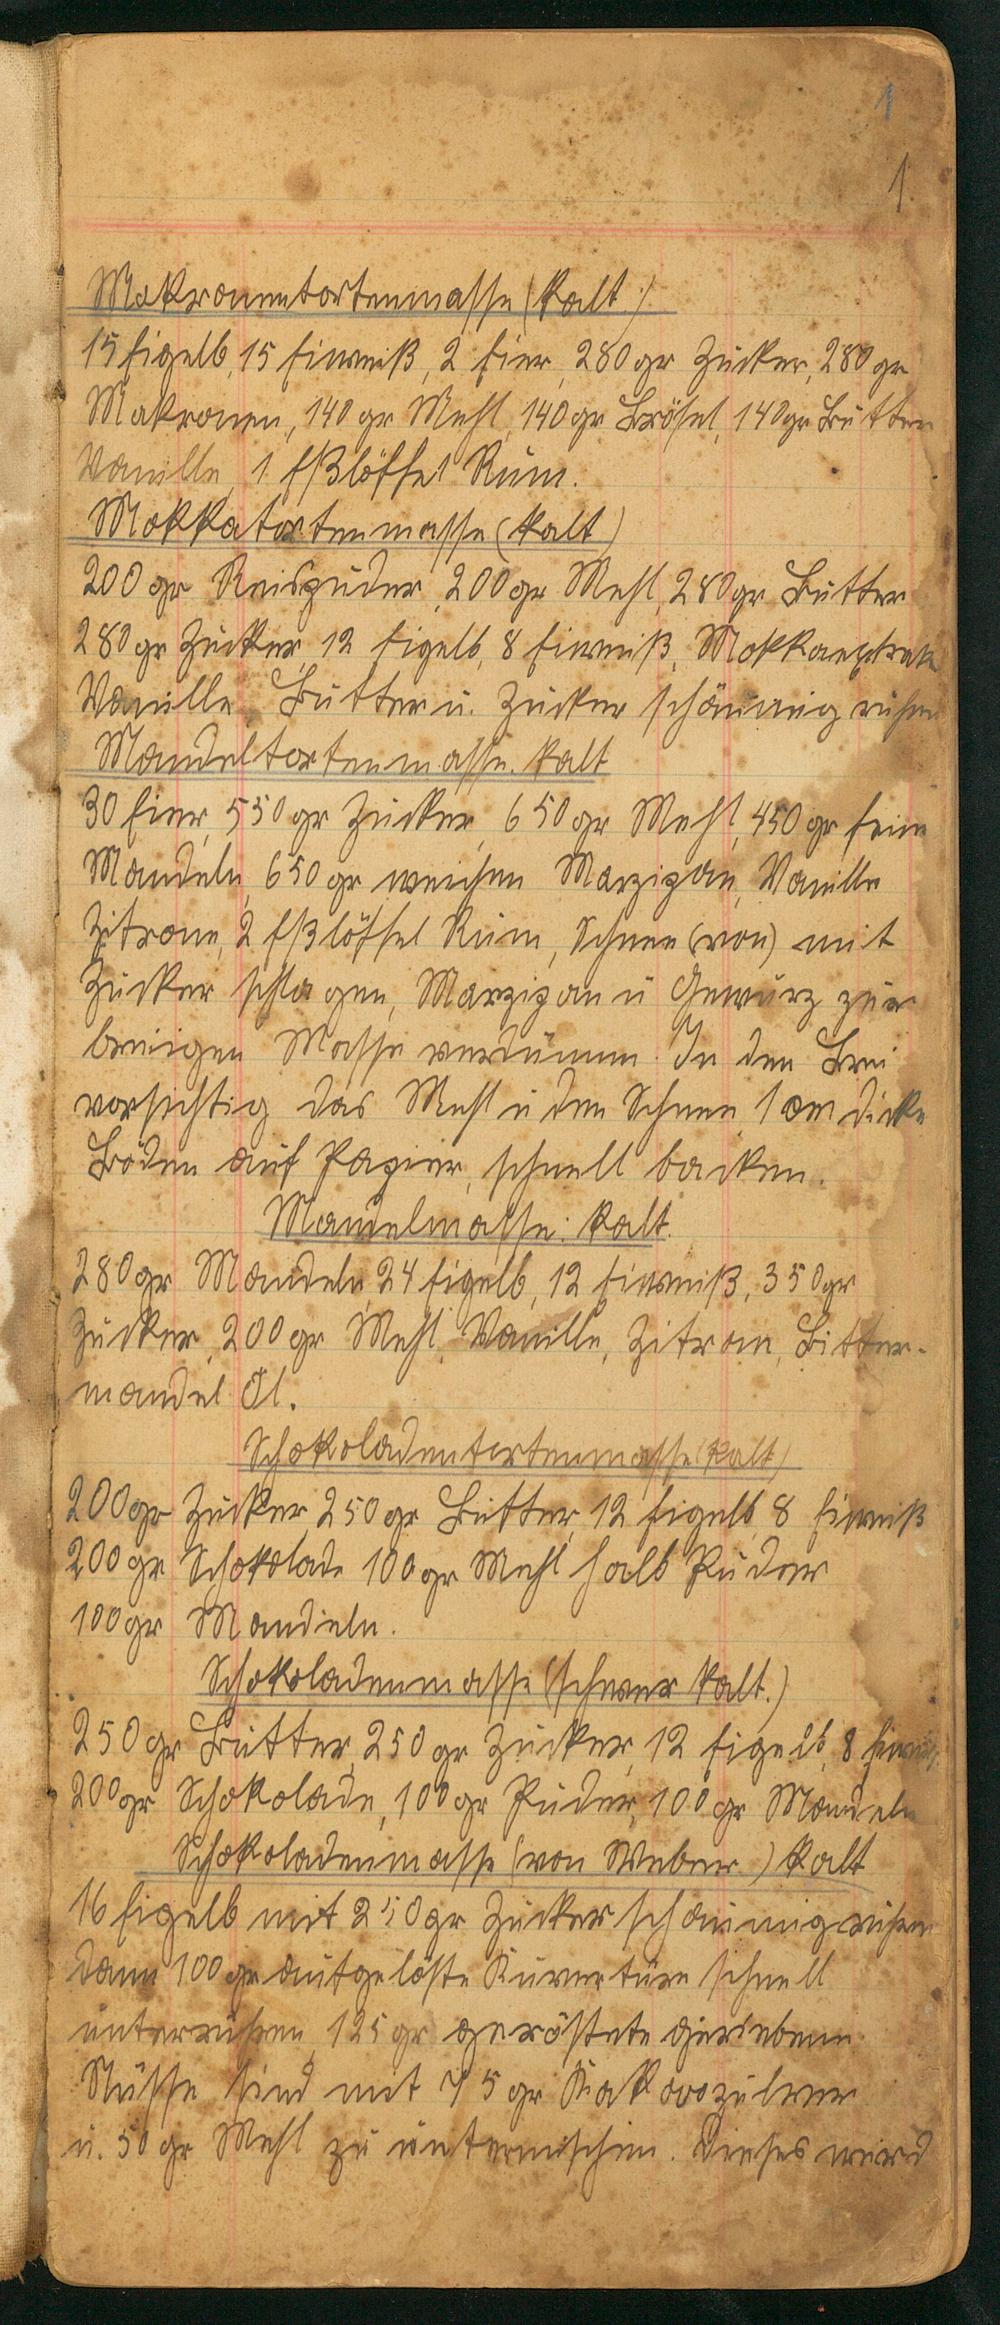 1
1
Makronentortenmasse (kalt.)
15 Eigelb, 15 Eiweiß, 2 Eier, 280 gr Zucker, 280 gr
Makronen, 140 gr Mehl, 140 gr Brösel, 140 gr Butter
Vanille, 1 Eßlöffel Rum.
Mokkatortenmasse (kalt)
200 gr Reispuder, 200 gr Mehl, 280 gr Butter
280 gr Zucker, 12 Eigelb, 8 Eiweiß, Mokkaextrak
Vanille, Butter u. Zucker schaumig rühren
Mandeltortenmasse. kalt
30 Eier, 550 gr Zucker, 650 gr Mehl, 450 gr feine
Mandeln, 650 gr weichen Marzipan, Vanille
Zitrone, 2 Eßlöffel Rum, Schnee (von) mit
Zucker schlagen, Marzipan u Gewürz zur
breiigen Masse verdünnen. In den Brei
vorsichtig das Mehl u den Schnee 1 cm dicke
Böden auf Papier, schnell backen.
Mandelmasse: kalt.
280 gr Mandeln 24 Eigelb, 12 Eiweiß, 350 gr
Zucker, 200 gr Mehl, Vanille, Zitron, Bitter-
mandel Öl.
Schokoladentortenmasse (kalt)
200 gr Zucker, 250 gr Butter, 12 Eigelb 8 Eiweiß
200 gr Schokolade 100 gr Mehl halb Puder
100 gr Mandeln.
Schokoladenmasse (schwer kalt.)
250 gr Butter, 250 gr Zucker, 12 Eigelb, 8 Eiweiß
200 gr Schokolade, 100 gr Puder, 100 gr Mandeln
Schokoladenmasse (von Weber) kalt
16 Eigelb mit 250 gr Zucker schaumig rühren
dann 100 gr aufgelöste Kuvertüre schnell
unterrühren, 125 gr geröstete geriebene
Nüsse sind mit 75 gr Kakaopulver
u. 50 gr Mehl zu untermischen. Dieses wird